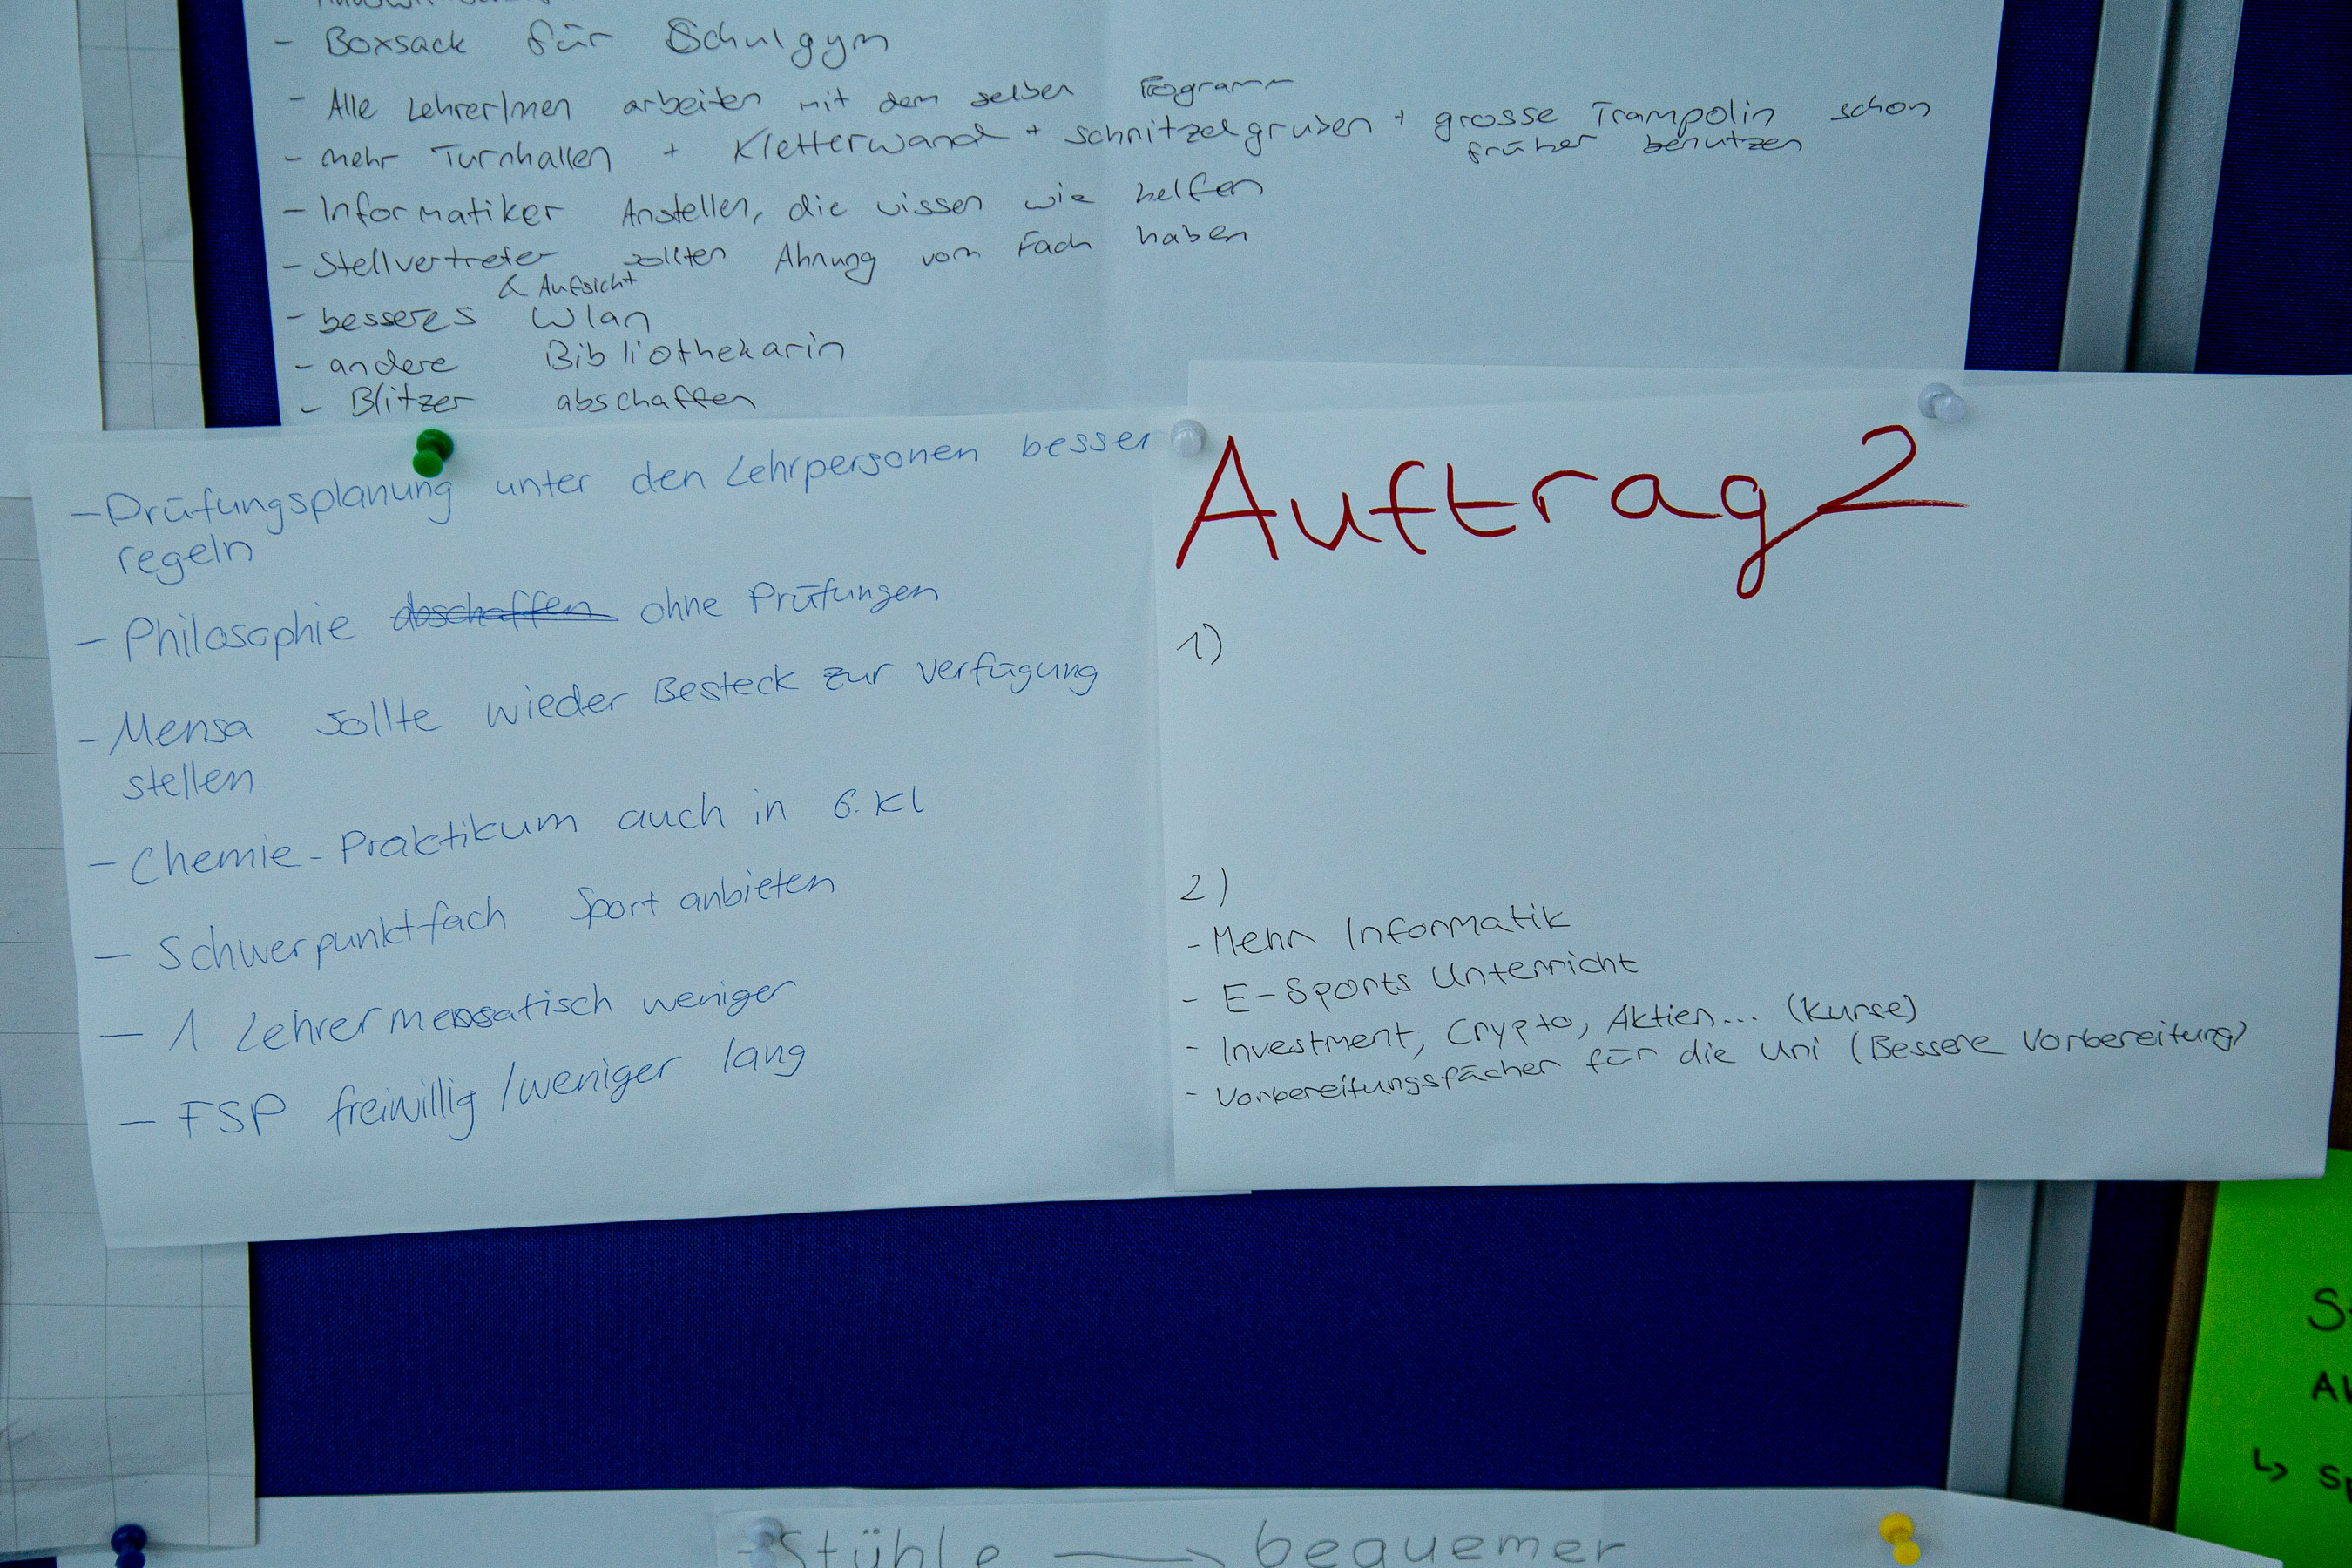 - Boxsack für Schulgym
- Alle LehrerInnen arbeiten mit dem selben Programm
- mehr Turnhallen + Kletterwand + schnitzelgruben + grosse Trampolin schon
früher benutzen
- Informatiker Anstellen, die wissen wie helfen
- Stellvertreter sollten Ahnung vom Fach haben
& Aufsicht
- besseres Wlan
- andere Bibliothekarin
- Blitzer abschaffen
- Prüfungsplanung unter den Lehrpersonen besser
regeln
- Philosophie abschaffen ohne Prüfungen
- Mensa sollte wieder Besteck zur Verfügung
stellen
- Chemie-Praktikum auch in 6. Kl
- Schwerpunktfach Sport anbieten
- 1 Lehrermensatisch weniger
- FSP freiwillig/weniger lang
Auftrag 2
1)
2)
- Mehr Informatik
- E-Sports Unterricht
- Investment, Crypto, Aktien... (Kurse)
- Vorbereitungsfächer für die Uni (Bessere Vorbereitung)
- Stühle → bequemer